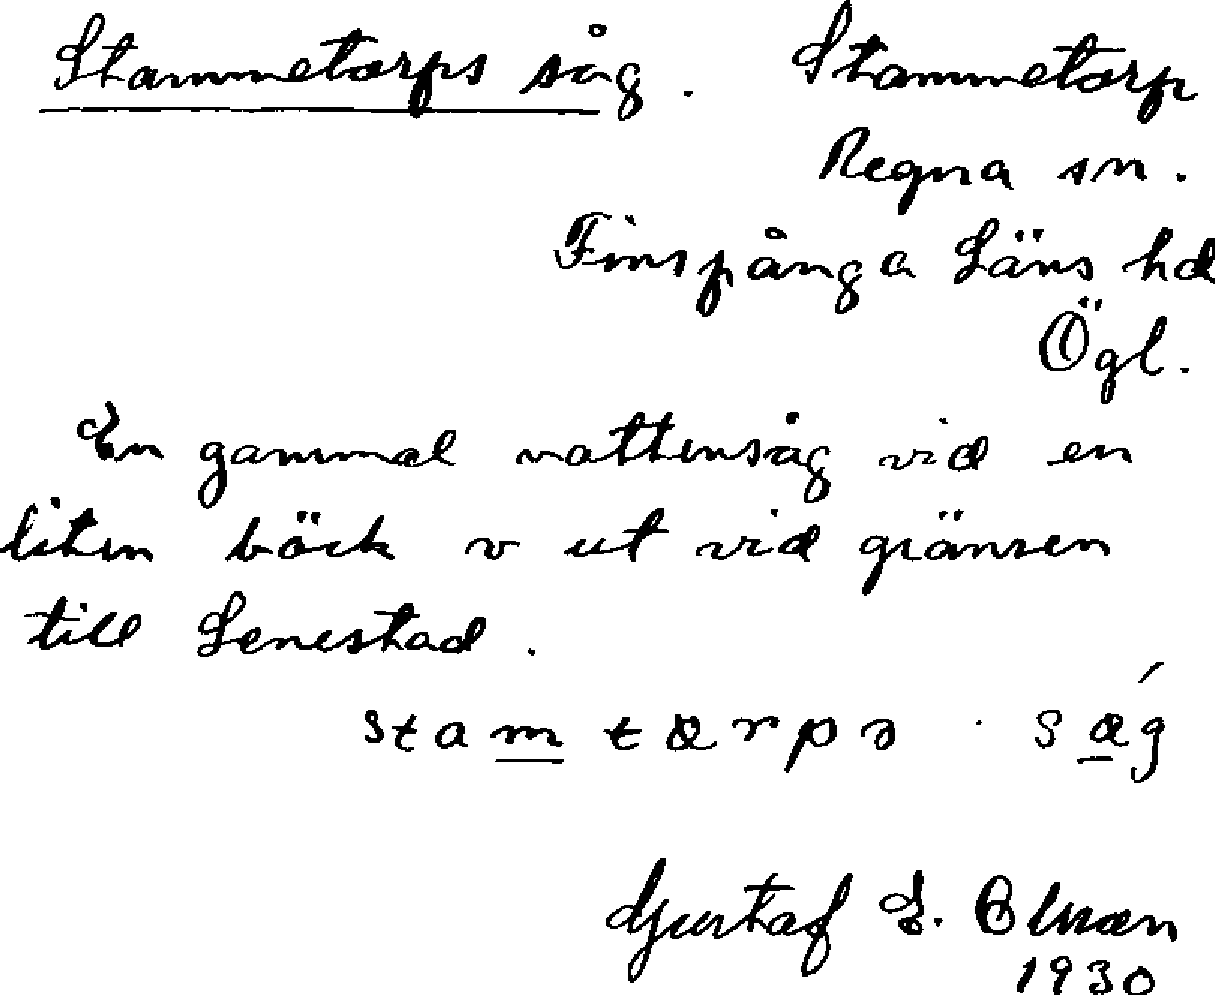 Stammetorps såg. Stammetorp
Regna sn.
Finspånga Läns hd
Ögl.
En gammal vattensåg vid en
liten bäck v ut vid gränsen
till Lenestad.
stamtɑrps · sǵ
Gustaf E. Olsson
1930